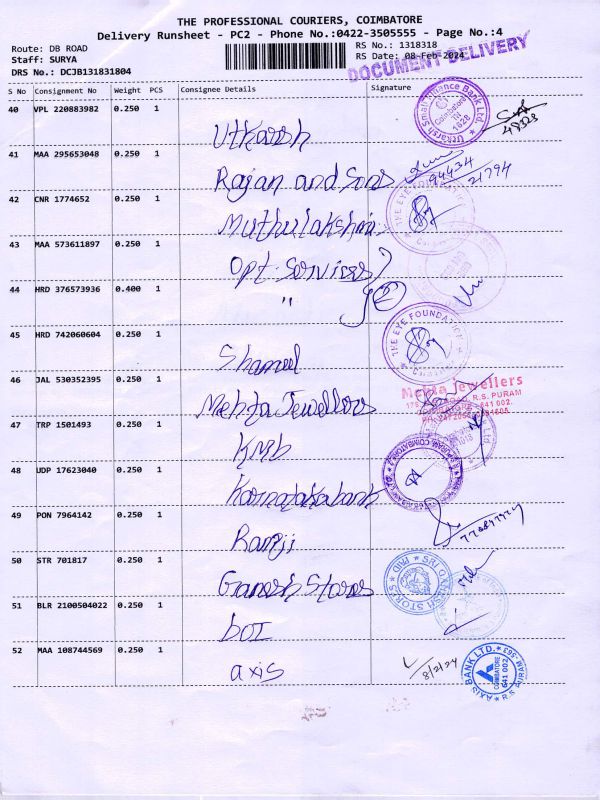 THE PROFESSIONAL COURIERS, COIMBATORE
Delivery Runsheet - PC2 - Phone No.:0422-3505555 - Page No.:4
Route: DB ROAD
Staff: SURYA
DRS No.: DCJB131831804
RS No.: 1318318
RS Date: 08-Feb-2024
DOCUMENT DELIVERY
S No Consignment No Weight PCS Consignee Details Signature
40 VPL 220883982 0.250 1 Utkarsh
Utkarsh Small Finance Bank Ltd.
Coimbatore
TN
1628
48328
41 MAA 295653048 0.250 1 Rajan and Sons
94434
21794
42 CNR 1774652 0.250 1 Muthulakshmi
THE EYE FOUNDATION
43 MAA 573611897 0.250 1 Opt. Services
44 HRD 376573936 0.400 1 " 2
45 HRD 742060604 0.250 1 Shameel
THE EYE FOUNDATION
46 JAL 530352395 0.250 1 Mehta Jewellers
Mehta Jewellers
R.S. PURAM
641 002.
47 TRP 1501493 0.250 1 KMB
48 UDP 17623040 0.250 1 Karnataka bank
49 PON 7964142 0.250 1 Ramji
50 STR 701817 0.250 1 Ganesh Stores
51 BLR 2100504022 0.250 1 boI
52 MAA 108744569 0.250 1 axis
8/2/24
AXIS BANK LTD.
COIMBATORE
641 002
R.S. PURAM